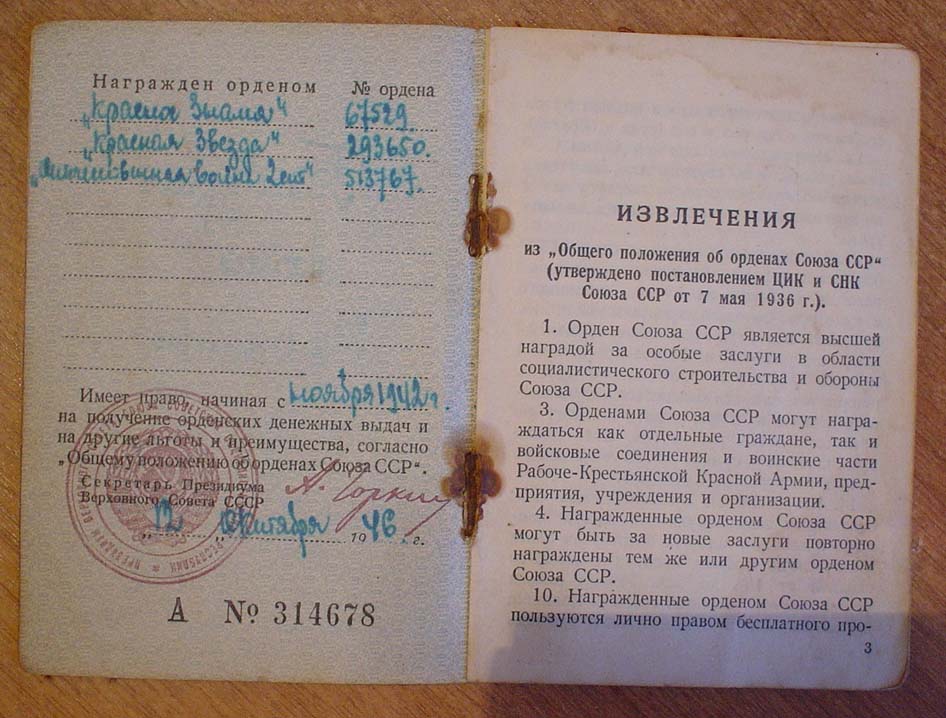 Награжден орденом № ордена
„Красное Знамя“ 67529.
„Красная Звезда“ 293650.
„Отечественная война 2 ст“ 513767.
Имеет право, начиная с ноября 1942 г.
на получение орденских денежных выдач и
на другие льготы и преимущества, согласно
„Общему положению об орденах Союза ССР“.
Секретарь Президиума
Верховного Совета СССР
А. Горкин
„12 „ Октября 1946. г.
А № 314678
ИЗВЛЕЧЕНИЯ
из „Общего положения об орденах Союза ССР“
(утверждено постановлением ЦИК и СНК
Союза ССР от 7 мая 1936 г.).
1. Орден Союза ССР является высшей
наградой за особые заслуги в области
социалистического строительства и обороны
Союза ССР.
3. Орденами Союза ССР могут награ-
ждаться как отдельные граждане, так и
войсковые соединения и воинские части
Рабоче-Крестьянской Красной Армии, пред-
приятия, учреждения и организации.
4. Награжденные орденом Союза ССР
могут быть за новые заслуги повторно
награждены тем же или другим орденом
Союза ССР.
10. Награжденные орденом Союза ССР
пользуются лично правом бесплатного про-
3